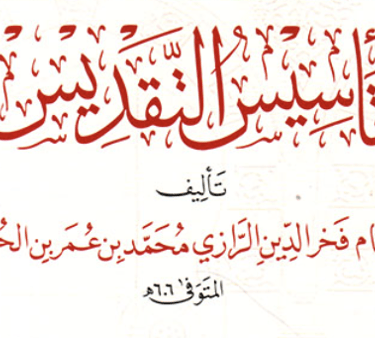 تأسيس التقديس
تأليف
ام فخر الدين الرازي محمد بن عمر بن الح
المتوفى ٦٠٦ه